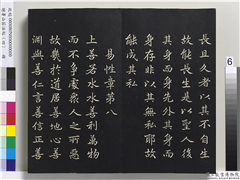 長且久者以其不自生
故能長生是以聖人後
其身而身先外其身而
身存非以其無私耶故
能成其私
易性章第八
上善若水水善利萬物
而不爭處衆人之所惡
故幾於道居善地心善
淵與善仁言善信正善
6